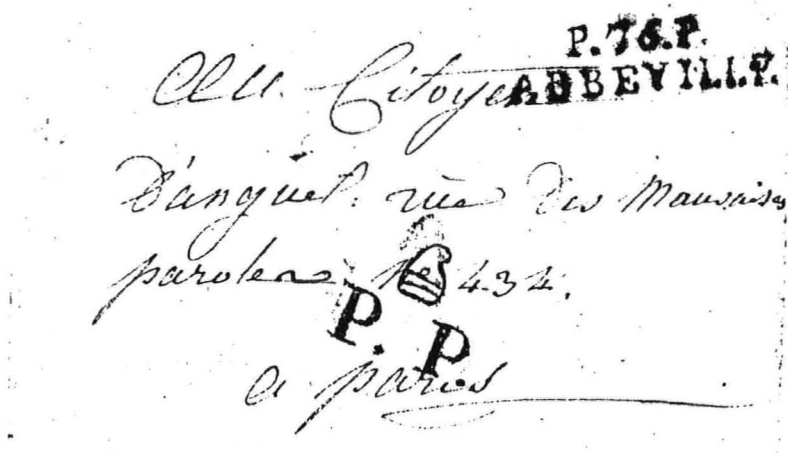 P.76.P.
ABBEVILLE.
Au Citoyen
Danguel. rüe des Mauvaises
paroles No 434.
P. P.
a paris